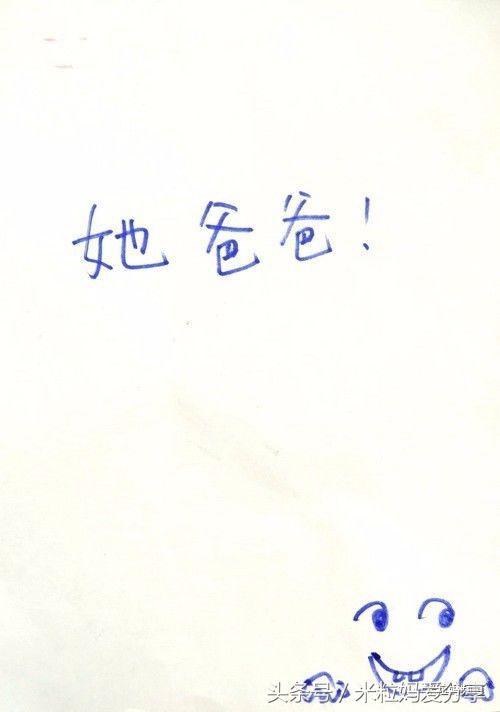 她爸爸!
头条号/米粒妈爱分享